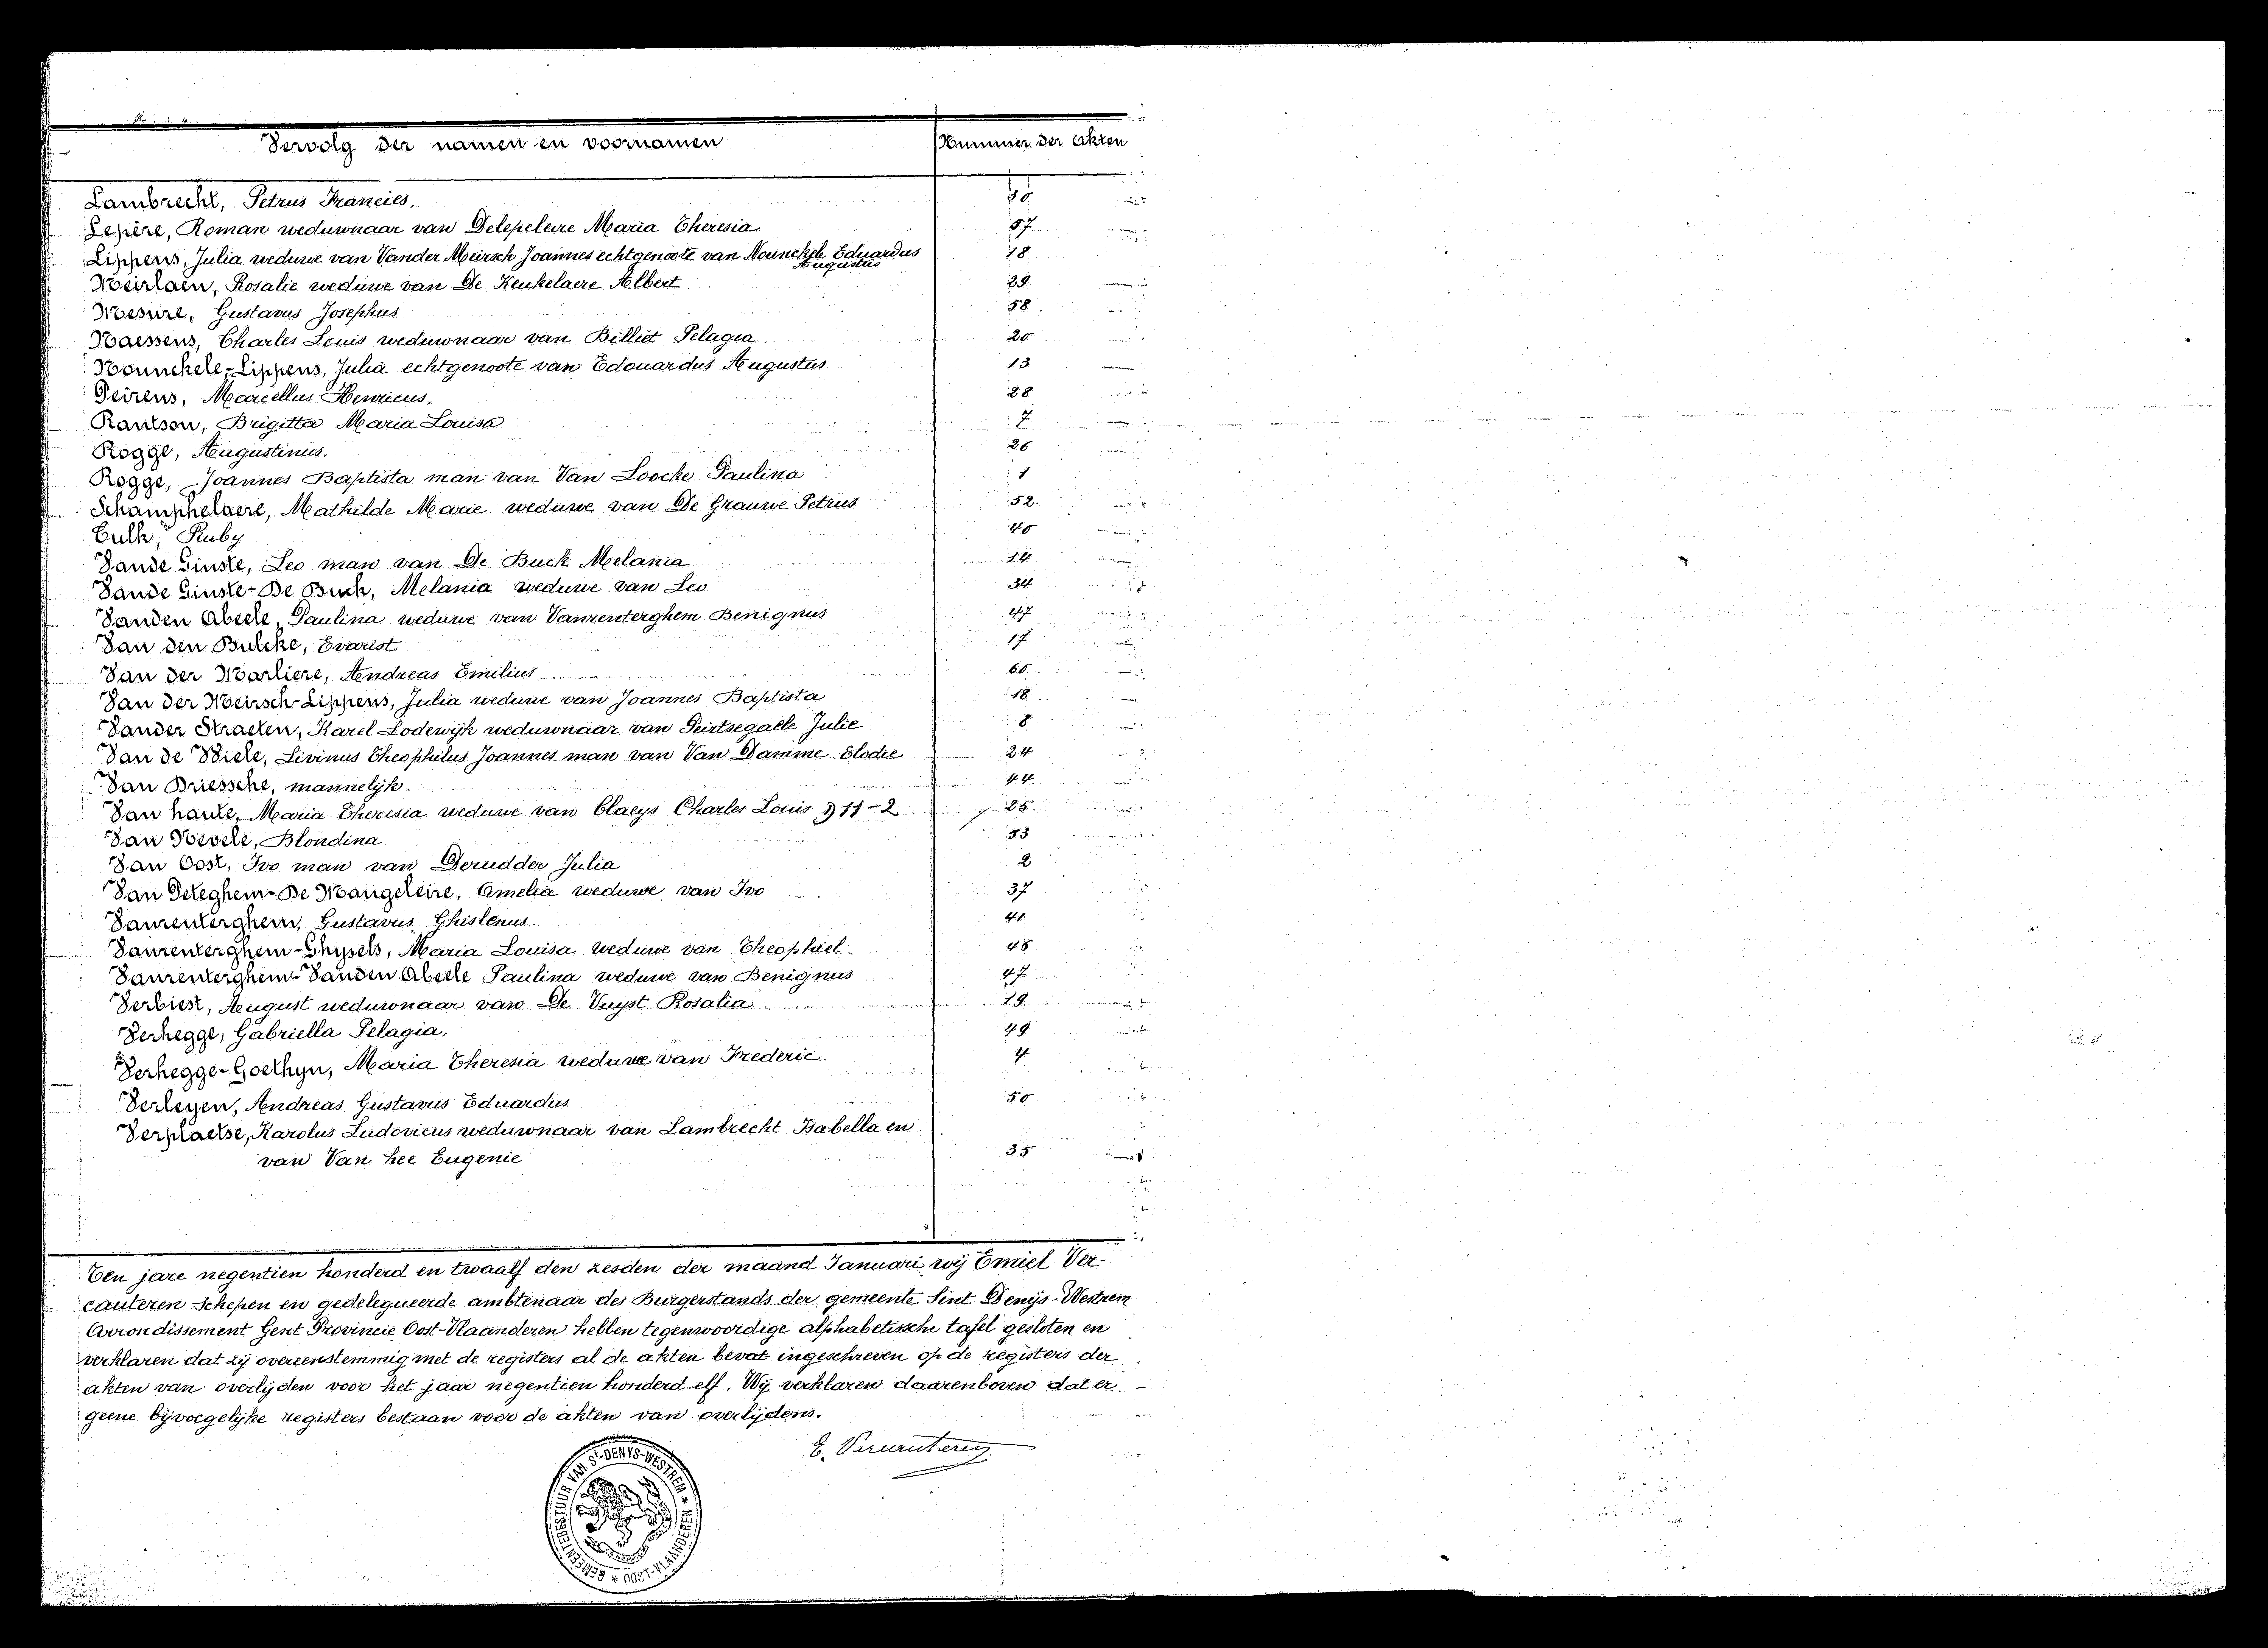 Vervolg der namen en voornamen Nummer der Akten
Lambrecht, Petrus Francies.
Lepère, Roman weduwnaar van Delepeleire Maria Theresia 57
Lippens, Julia weduwe van Vander Meirsch Joannes echtgenoote van Nounckele Eduardus Augustus 18
Meirlaen, Rosalie weduwe van De Keukelaere Albert 29
Mesure, Gustavus Josephus 58
Naessens, Charles Louis weduwnaar van Billiet Pelagia 20
Nounckele-Lippens, Julia echtgenoote van Edouardus Augustus 13
Peirens, Marcellus Henricus. 28
Rantson, Brigitta Maria Louisa 7
Rogge, Augustinus. 26
Rogge, Joannes Baptista man van Van Loocke Paulina 1
Schamphelaere, Mathilde Marie weduwe van De Grauwe Petrus 52
Ruby
Vande Ginste, Leo man van De Buck Melania 14
Vande Ginste-De Buck, Melania weduwe van Leo 34
Vanden Abeele, Paulina weduwe van Vanrenterghem Benignus 47
Van den Bulcke, Evarist 17
Van der Marliere, Andreas Emilius
Van der Meirsch-Lippens, Julia weduwe van Joannes Baptista 18
Vander Straeten, Karel Lodewijk weduwnaar van Peirtsegaele Julie 8
Van de Wiele, Livinus Theophilus Joannes man van Van Damme Elodie 24
Van Driessche, mannelijk. 44
Van haute, Maria Theresia weduwe van Claeys Charles Louis 11-2 25
Van Nevele, Blondina 53
Van Oost, Ivo man van Derudder Julia 2
Van Peteghem-De Mangeleire, Amelia weduwe van Ivo 37
Vanrenterghem, Gustavus Ghislenus 41
Vanrenterghem-Ghysels, Maria Louisa weduwe van Theophiel
Vanrenterghem-Vanden Abeele Paulina weduwe van Benignus 47
Verbiest, August weduwnaar van De Vuyst Rosalia 19
Verhegge, Gabriella Pelagia. 49
Verhegge-Goethyn, Maria Theresia weduwe van Frederic. 4
Verleyen, Andreas Gustavus Eduardus 50
Verplaetse, Karolus Ludovicus weduwnaar van Lambrecht Isabella en
van Van hee Eugenie 35
Ten jare negentien honderd en twaalf den zesden der maand Januari, wij Emiel Ver-
cauteren Schepen en gedelegueerde ambtenaar des Burgerstands der gemeente Sint Denijs-Westrem
Arrondissement Gent Provincie Oost-Vlaanderen hebben tegenwoordige alphabetissche tafel gesloten en
verklaren dat zij overeenstemmig met de registers al de akten bevat ingeschreven op de registers der
akten van overlijden voor het jaar negentien honderd elf. Wij verklaren daarenboven dat er
geene bijvoegelijke registers bestaan voor de akten van overlijdens.
E. Vercauteren
GEMEENTEBESTUUR VAN St-DENYS-WESTREM * OOST-VLAANDEREN *